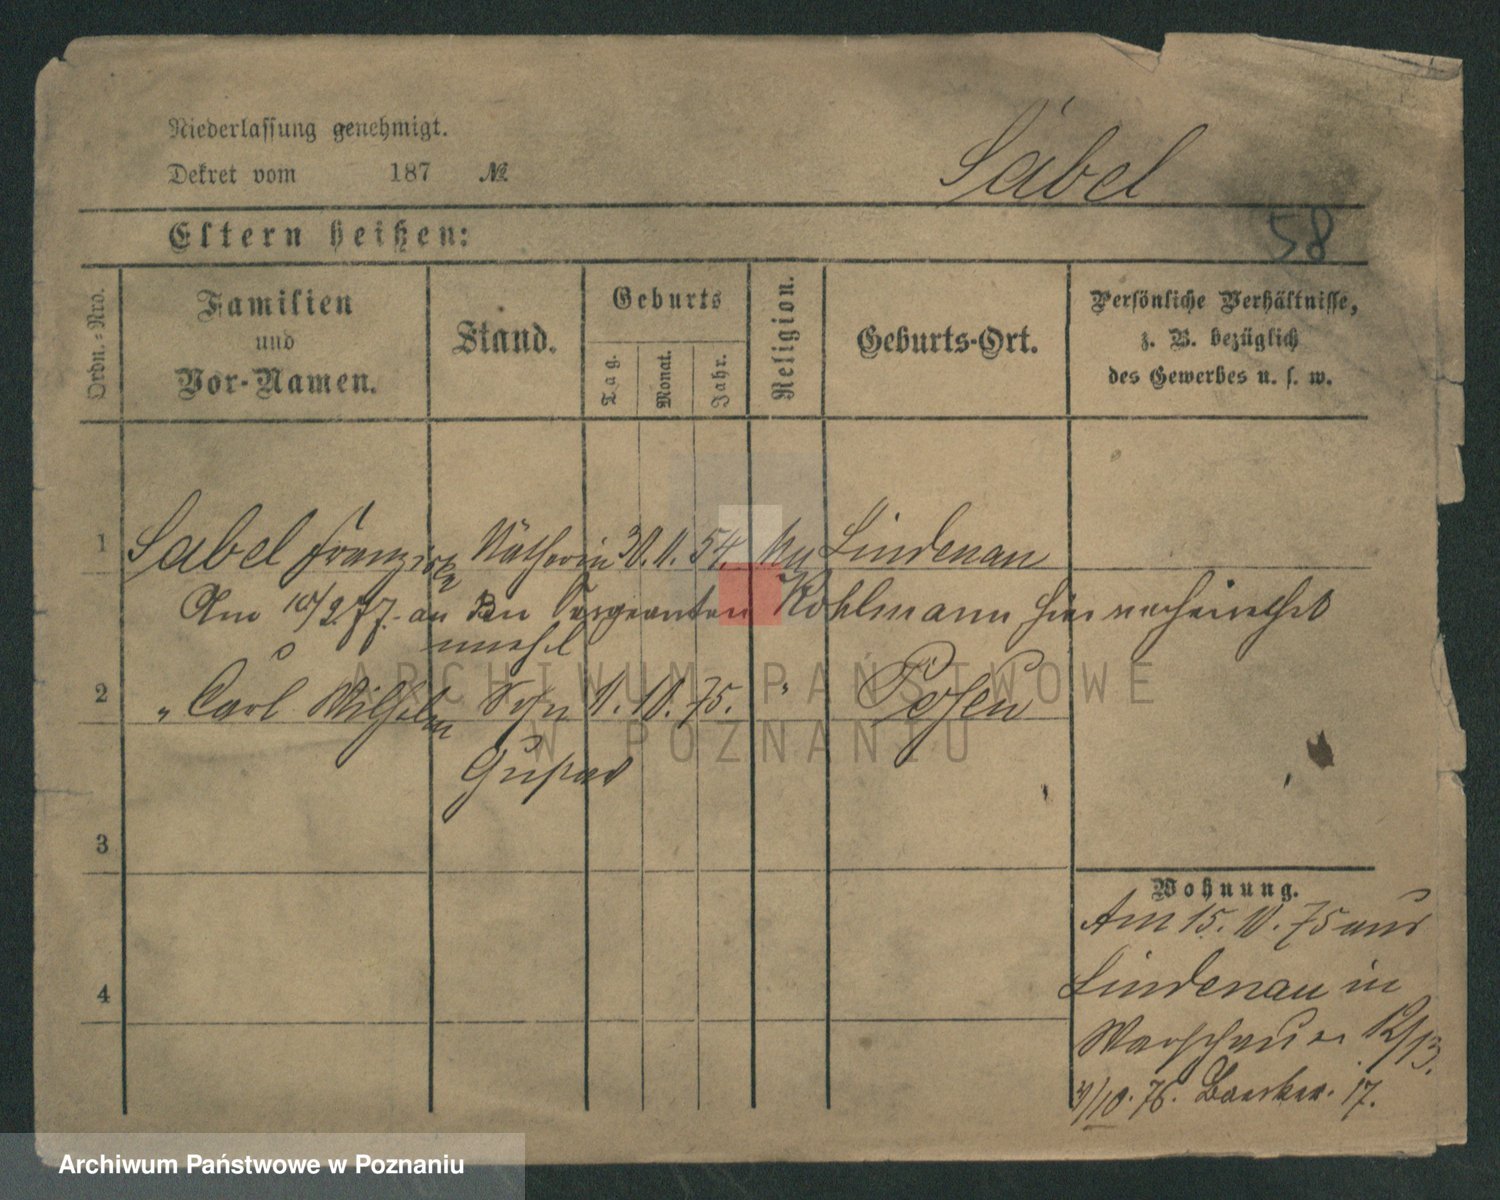 Niederlassung genehmigt.
Dekret vom 187 №
Sabel
58
Eltern heißen:
Ordn.-Nro.
Familien
und
Vor-Namen.
Stand.
Geburts
Tag.
Monat.
Jahr.
Religion.
Geburts-Ort.
Persönliche Verhältnisse,
z. B. bezüglich
des Gewerbes u. s. w.
1 Sabel Franziska Nätherin 54. Lindenau
Am 10/2 77. an den Sergeanten Kohlmann hier verheirathet
2 " Carl Wilhelm Sohn 10. 75. " Posen
Gustav
3
4
Wohnung.
Am 15. 10. 75 aus
Lindenau in
Warschauer 12/13.
/10. 76. 17.
ARCHIWUM PAŃSTWOWE
W POZNANIU
Archiwum Państwowe w Poznaniu